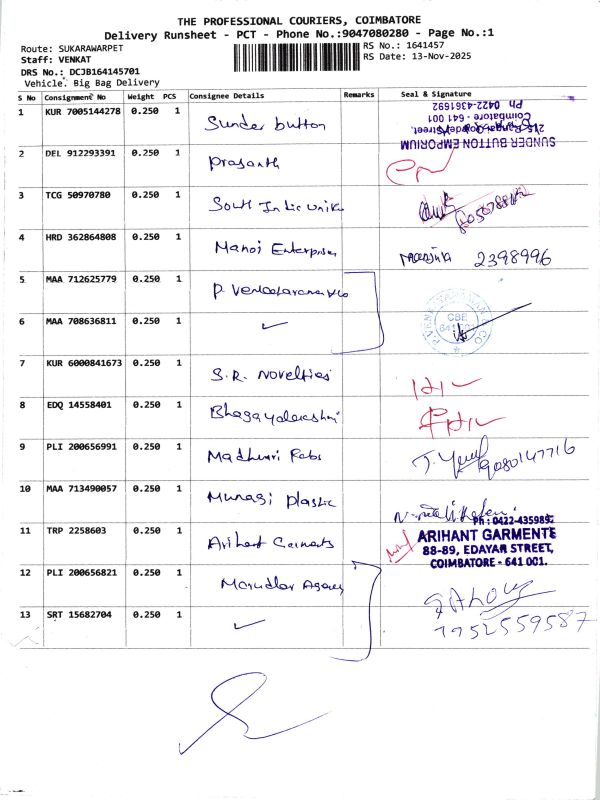 THE PROFESSIONAL COURIERS, COIMBATORE
Delivery Runsheet - PCT - Phone No.:9047080280 - Page No.:1
Route: SUKARAWARPET
RS No.: 1641457
Staff: VENKAT
RS Date: 13-Nov-2025
DRS No.: DCJB164145701
Vehicle: Big Bag Delivery
S No Consignment No Weight PCS Consignee Details Remarks Seal & Signature
1 KUR 7005144278 0.250 1 Sunder button
SUNDER BUTTON EMPORIUM
Street,
Coimbatore - 641 001
Ph 0422-4361692
2 DEL 912293391 0.250 1 Prasanth
3 TCG 50970780 0.250 1 South
4 HRD 362864808 0.250 1 Manoj Enterprises 2398996
5 MAA 712625779 0.250 1
6 MAA 708636811 0.250 1 ✓
CBE
7 KUR 6000841673 0.250 1 S.R. Novelties
8 EDQ 14558401 0.250 1
9 PLI 200656991 0.250 1 Madhuri Fabs 9080147716
10 MAA 713490057 0.250 1 Plastic
11 TRP 2258603 0.250 1 Arihant Garments
Ph: 0422-435989
ARIHANT GARMENTS
88-89, EDAYAR STREET,
COIMBATORE - 641 001.
12 PLI 200656821 0.250 1 Agency
13 SRT 15682704 0.250 1 ✓
7752559587